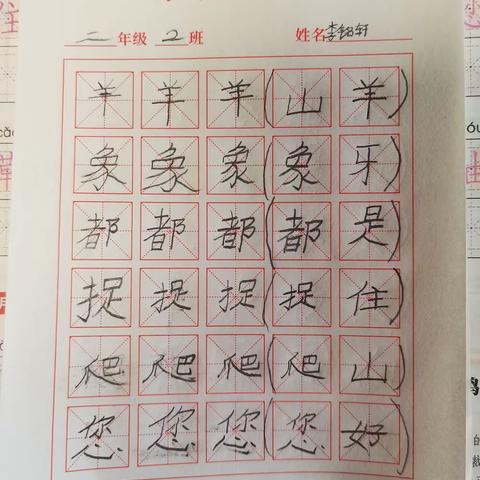 二年级 2班 姓名李铭轩
羊羊羊(山羊)
象象象(象牙)
都都都(都是)
捉捉捉(捉住)
爬爬爬(爬山)
您您您(您好)